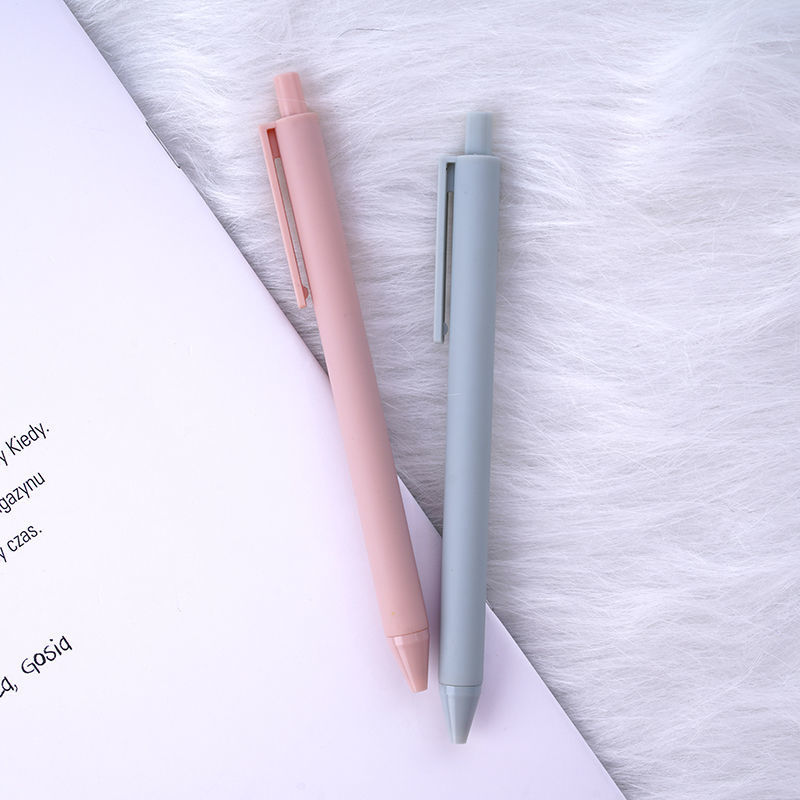 y Kiedy.
gazynu
y czas.
a, Gosia